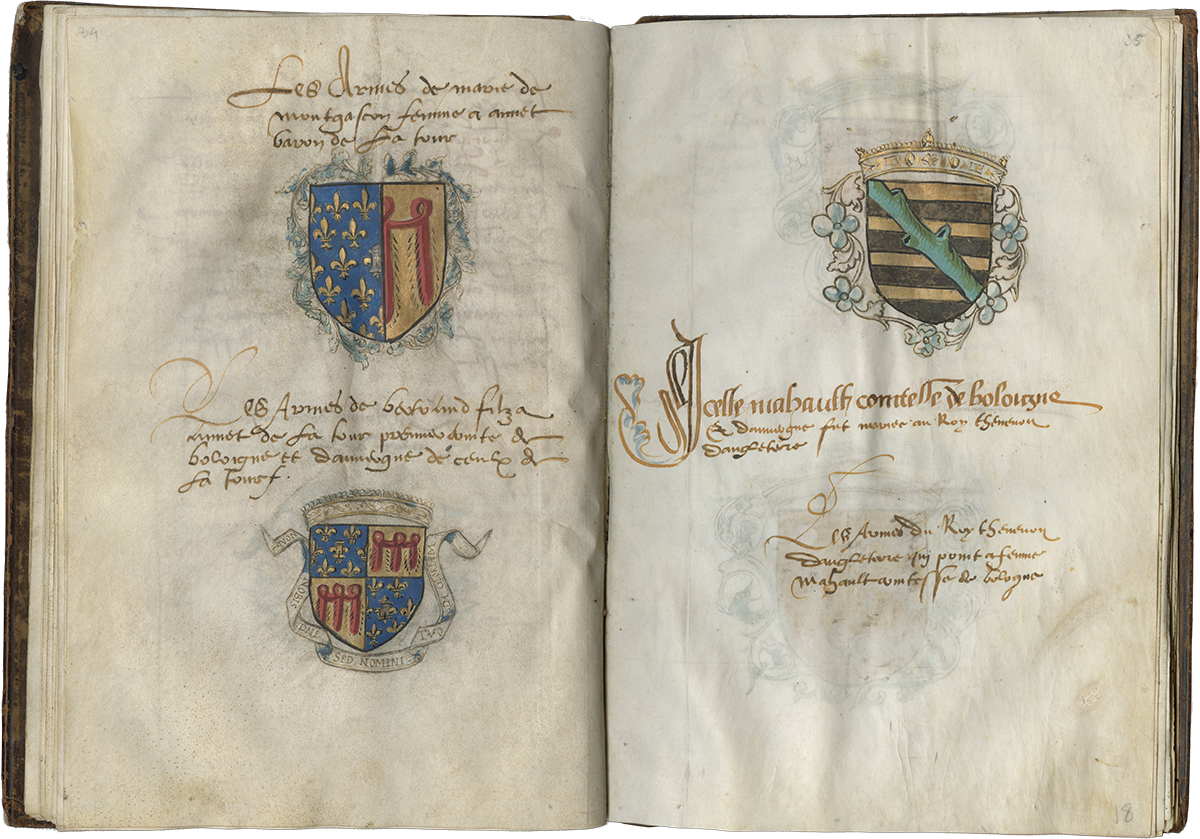 34
Les Armes de marie de
montgascon femme a annet
baron de la tour
Les Armes de bertrand filz a
annet de la tour premier comte de
boloigne et dauuergne de ceulx de
la tour
NON
NOBIS
DNE
SED NOMINI
TVO
35
Icelle mahault comtesse de boloigne
et dauuergne fut mariee au Roy
dangleterre
Les Armes du Roy
dangleterre qui print a femme
Mahault comtesse de bologne
18